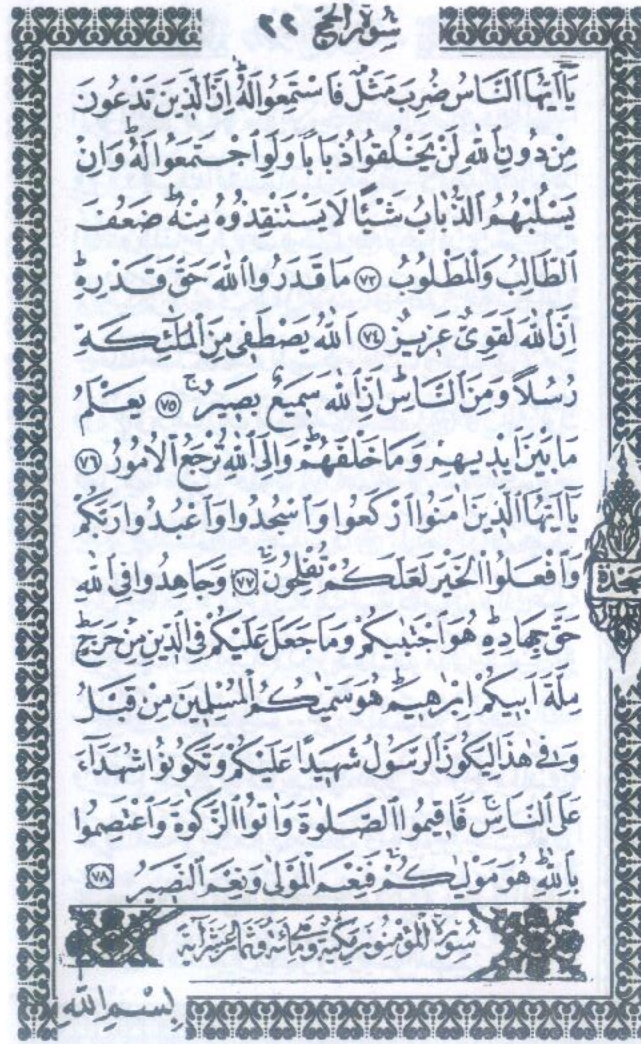 سُورَةُ الْحَجِّ ٢٢
يَٓا اَيُّهَا النَّاسُ ضُرِبَ مَثَلٌ فَاسْتَمِعُوا لَهُۜ اِنَّ الَّذ۪ينَ تَدْعُونَ
مِنْ دُونِ اللّٰهِ لَنْ يَخْلُقُوا ذُبَابًا وَلَوِ اجْتَمَعُوا لَهُۜ وَاِنْ
يَسْلُبْهُمُ الذُّبَابُ شَيْـًٔا لَا يَسْتَنْقِذُوهُ مِنْهُۜ ضَعُفَ
الطَّالِبُ وَالْمَطْلُوبُ ﴿٧٣﴾ مَا قَدَرُوا اللّٰهَ حَقَّ قَدْرِه۪ۜ
اِنَّ اللّٰهَ لَقَوِيٌّ عَز۪يزٌ ﴿٧٤﴾ اَللّٰهُ يَصْطَف۪ي مِنَ الْمَلٰٓئِكَةِ
رُسُلًا وَمِنَ النَّاسِۜ اِنَّ اللّٰهَ سَم۪يعٌ بَص۪يرٌۚ ﴿٧٥﴾ يَعْلَمُ
مَا بَيْنَ اَيْد۪يهِمْ وَمَا خَلْفَهُمْۜ وَاِلَى اللّٰهِ تُرْجَعُ الْاُمُورُ ﴿٧٦﴾
يَٓا اَيُّهَا الَّذ۪ينَ اٰمَنُوا ارْكَعُوا وَاسْجُدُوا وَاعْبُدُوا رَبَّكُمْ
وَافْعَلُوا الْخَيْرَ لَعَلَّكُمْ تُفْلِحُونَۚ ﴿٧٧﴾ وَجَاهِدُوا فِي اللّٰهِ
سجدة
حَقَّ جِهَادِه۪ۜ هُوَ اجْتَبٰيكُمْ وَمَا جَعَلَ عَلَيْكُمْ فِي الدّ۪ينِ مِنْ حَرَجٍۜ
مِلَّةَ اَب۪يكُمْ اِبْرٰه۪يمَۜ هُوَ سَمّٰيكُمُ الْمُسْلِم۪ينَ مِنْ قَبْلُ
وَف۪ي هٰذَا لِيَكُونَ الرَّسُولُ شَه۪يدًا عَلَيْكُمْ وَتَكُونُوا شُهَدَٓاءَ
عَلَى النَّاسِۚ فَاَق۪يمُوا الصَّلٰوةَ وَاٰتُوا الزَّكٰوةَ وَاعْتَصِمُوا
بِاللّٰهِۜ هُوَ مَوْلٰيكُمْۚ فَنِعْمَ الْمَوْلٰى وَنِعْمَ النَّص۪يرُ ﴿٧٨﴾
سُورَةُ الْمُؤْمِنُونَ مَكِّيَّةٌ وَهِيَ مِائَةٌ وَثَمَانِيَ عَشْرَةَ اٰيَةً
بِسْمِ اللّٰهِ